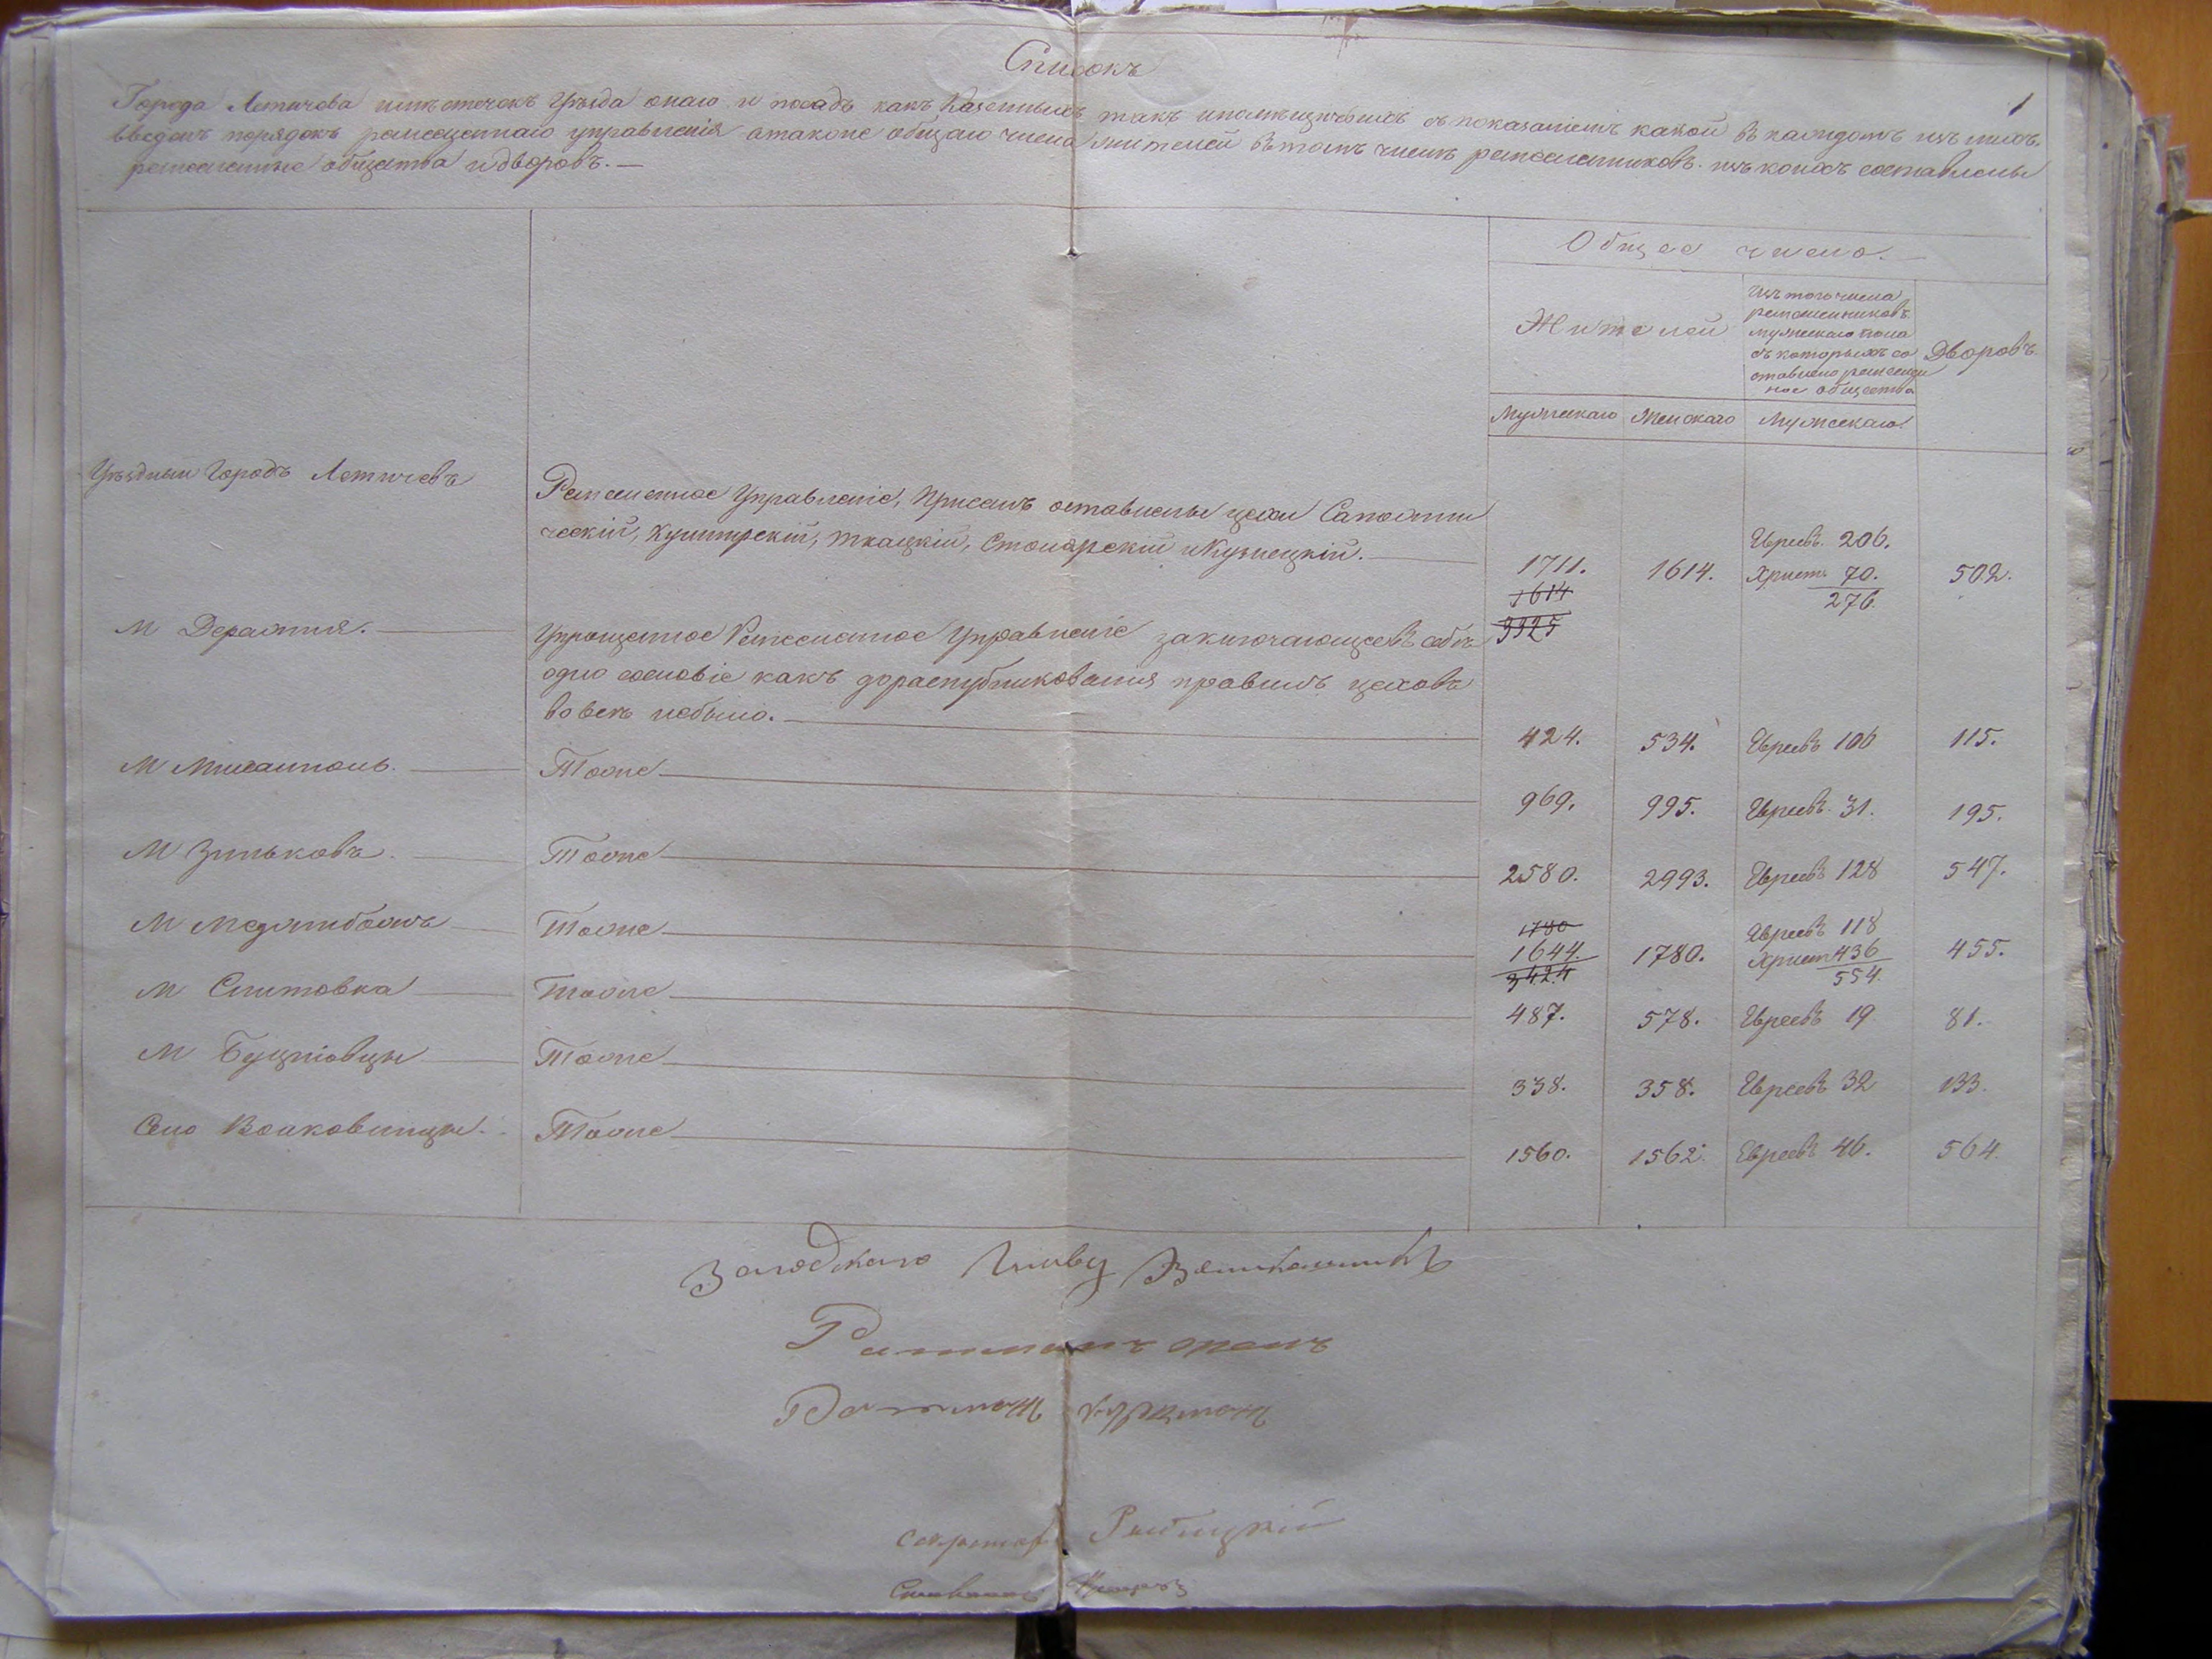 Списокъ
1
Города Летичева и мѣстечекъ Уѣзда онаго и посадъ какъ Казенныхъ такъ и помѣщичьихъ съ показаніемъ какой въ каждомъ изъ нихъ
введенъ порядокъ ремесленнаго управленія атакже общаго числа жителей въ томъ числѣ ремесленниковъ изъ коихъ составлены
ремесленные общества и дворовъ.—
Общее число.—
Жителей
Изъ того числа
ремесленниковъ
мужескаго пола
съ которыхъ со
ставлено ремеслен
ное общество
Дворовъ
Мужескаго Женскаго Мужескаго
Уѣздный Городъ Летичевъ
Ремесленное Управленіе, При семъ оставлены цехи Сапожни
ческій, Кушнирскій, ткацкій, Столярскій и Кузнецкій.
Евреевъ 206.
1711. 1614. Христ. 70. 502.
1614
276.
3325
М Деражня.
Упрощенное Ремесленное Управленіе заключающее въ себѣ
одно сословіе какъ до распубликованія правилъ цеховъ
вовсе небыло.
424. 534. Евреевъ 106 115.
М Михалполь. Тоже 969. 995. Евреевъ 31. 195.
М Зиньковъ. Тоже 2580. 2993. Евреевъ 128 547.
М Меджибожъ Тоже
1780
Евреевъ 118
1644. 1780. Христ 436 455.
3424
554.
М Снитовка Тоже 487. 578. Евреевъ 19 81.
М Буцніовцы Тоже 338. 358. Евреевъ 32 133.
Село Волковинцы. Тоже 1560. 1562. Евреевъ 46. 564.
Ратманъ
Ратманъ
Секретарь